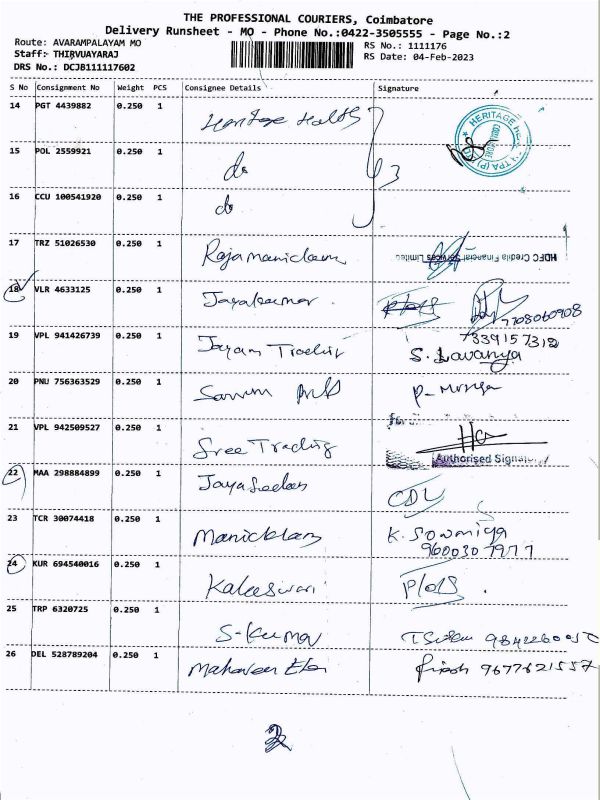 THE PROFESSIONAL COURIERS, Coimbatore
Delivery Runsheet - MO - Phone No.:0422-3505555 - Page No.:2
Route: AVARAMPALAYAM MO
RS No.: 1111176
Staff: THIRVUAYARAJ
RS Date: 04-Feb-2023
DRS No.: DCJB111117602
S No Consignment No Weight PCS Consignee Details Signature
14 PGT 4439882 0.250 1 Heritage Health
HERITAGE
TPA (P)
15 POL 2559921 0.250 1 do 3
16 CCU 100541920 0.250 1 do
17 TRZ 51026530 0.250 1 Rajamanickam HDFC Credila Financial Services Limited
18 VLR 4633125 0.250 1 Jayakumar 7708060908
19 VPL 941426739 0.250 1 Jayam Trading 7339157312
S. Lavanya
20 PNU 756363529 0.250 1
21 VPL 942509527 0.250 1 Sree Trading
for
Authorised Signatory
22 MAA 298884899 0.250 1
23 TCR 30074418 0.250 1 Manickkam K. Sowmiya
9600307977
24 KUR 694540016 0.250 1 Kaleeswari
25 TRP 6320725 0.250 1 S-Kumar
26 DEL 528789204 0.250 1 9677621557